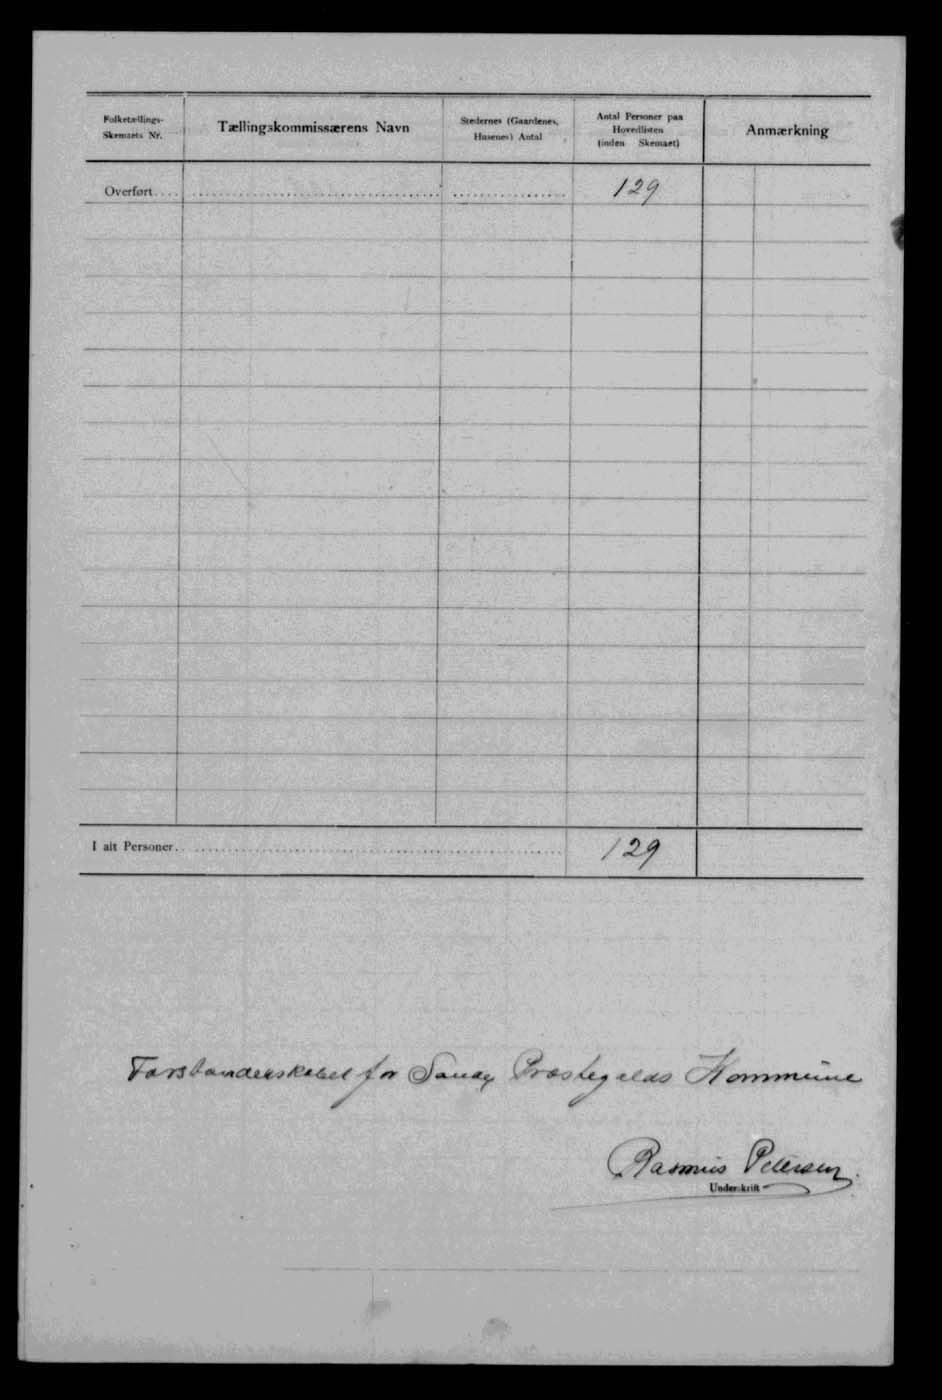 Folketællings-
Skemaets Nr.
Tællingskommissærens Navn
Stedernes (Gaardenes,
Husenes) Antal
Antal Personer paa
Hovedlisten
(inden Skemaet)
Anmærkning
Overført.... 129
I alt Personer. 129
Forstanderskabet for Sandø Præstegælds Kommune
Rasmus Petersen
Underskrift